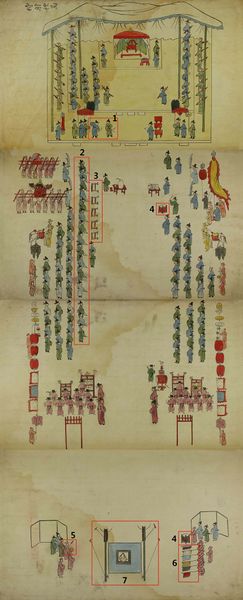 1
2
3
4
5
4
6
7